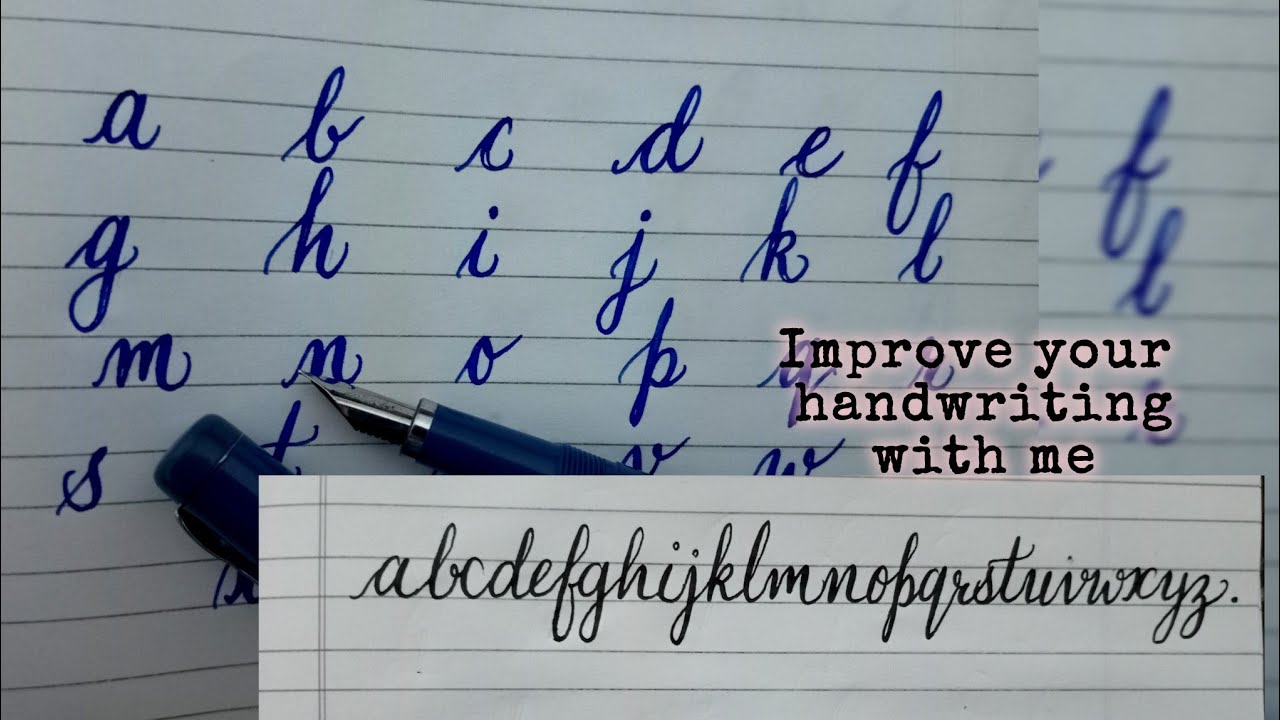 a b c d e f
g h i j k l
m n o p q r
s t v w
Improve your
handwriting
with me
abcdefghijklmnopqrstuvwxyz.
f
l